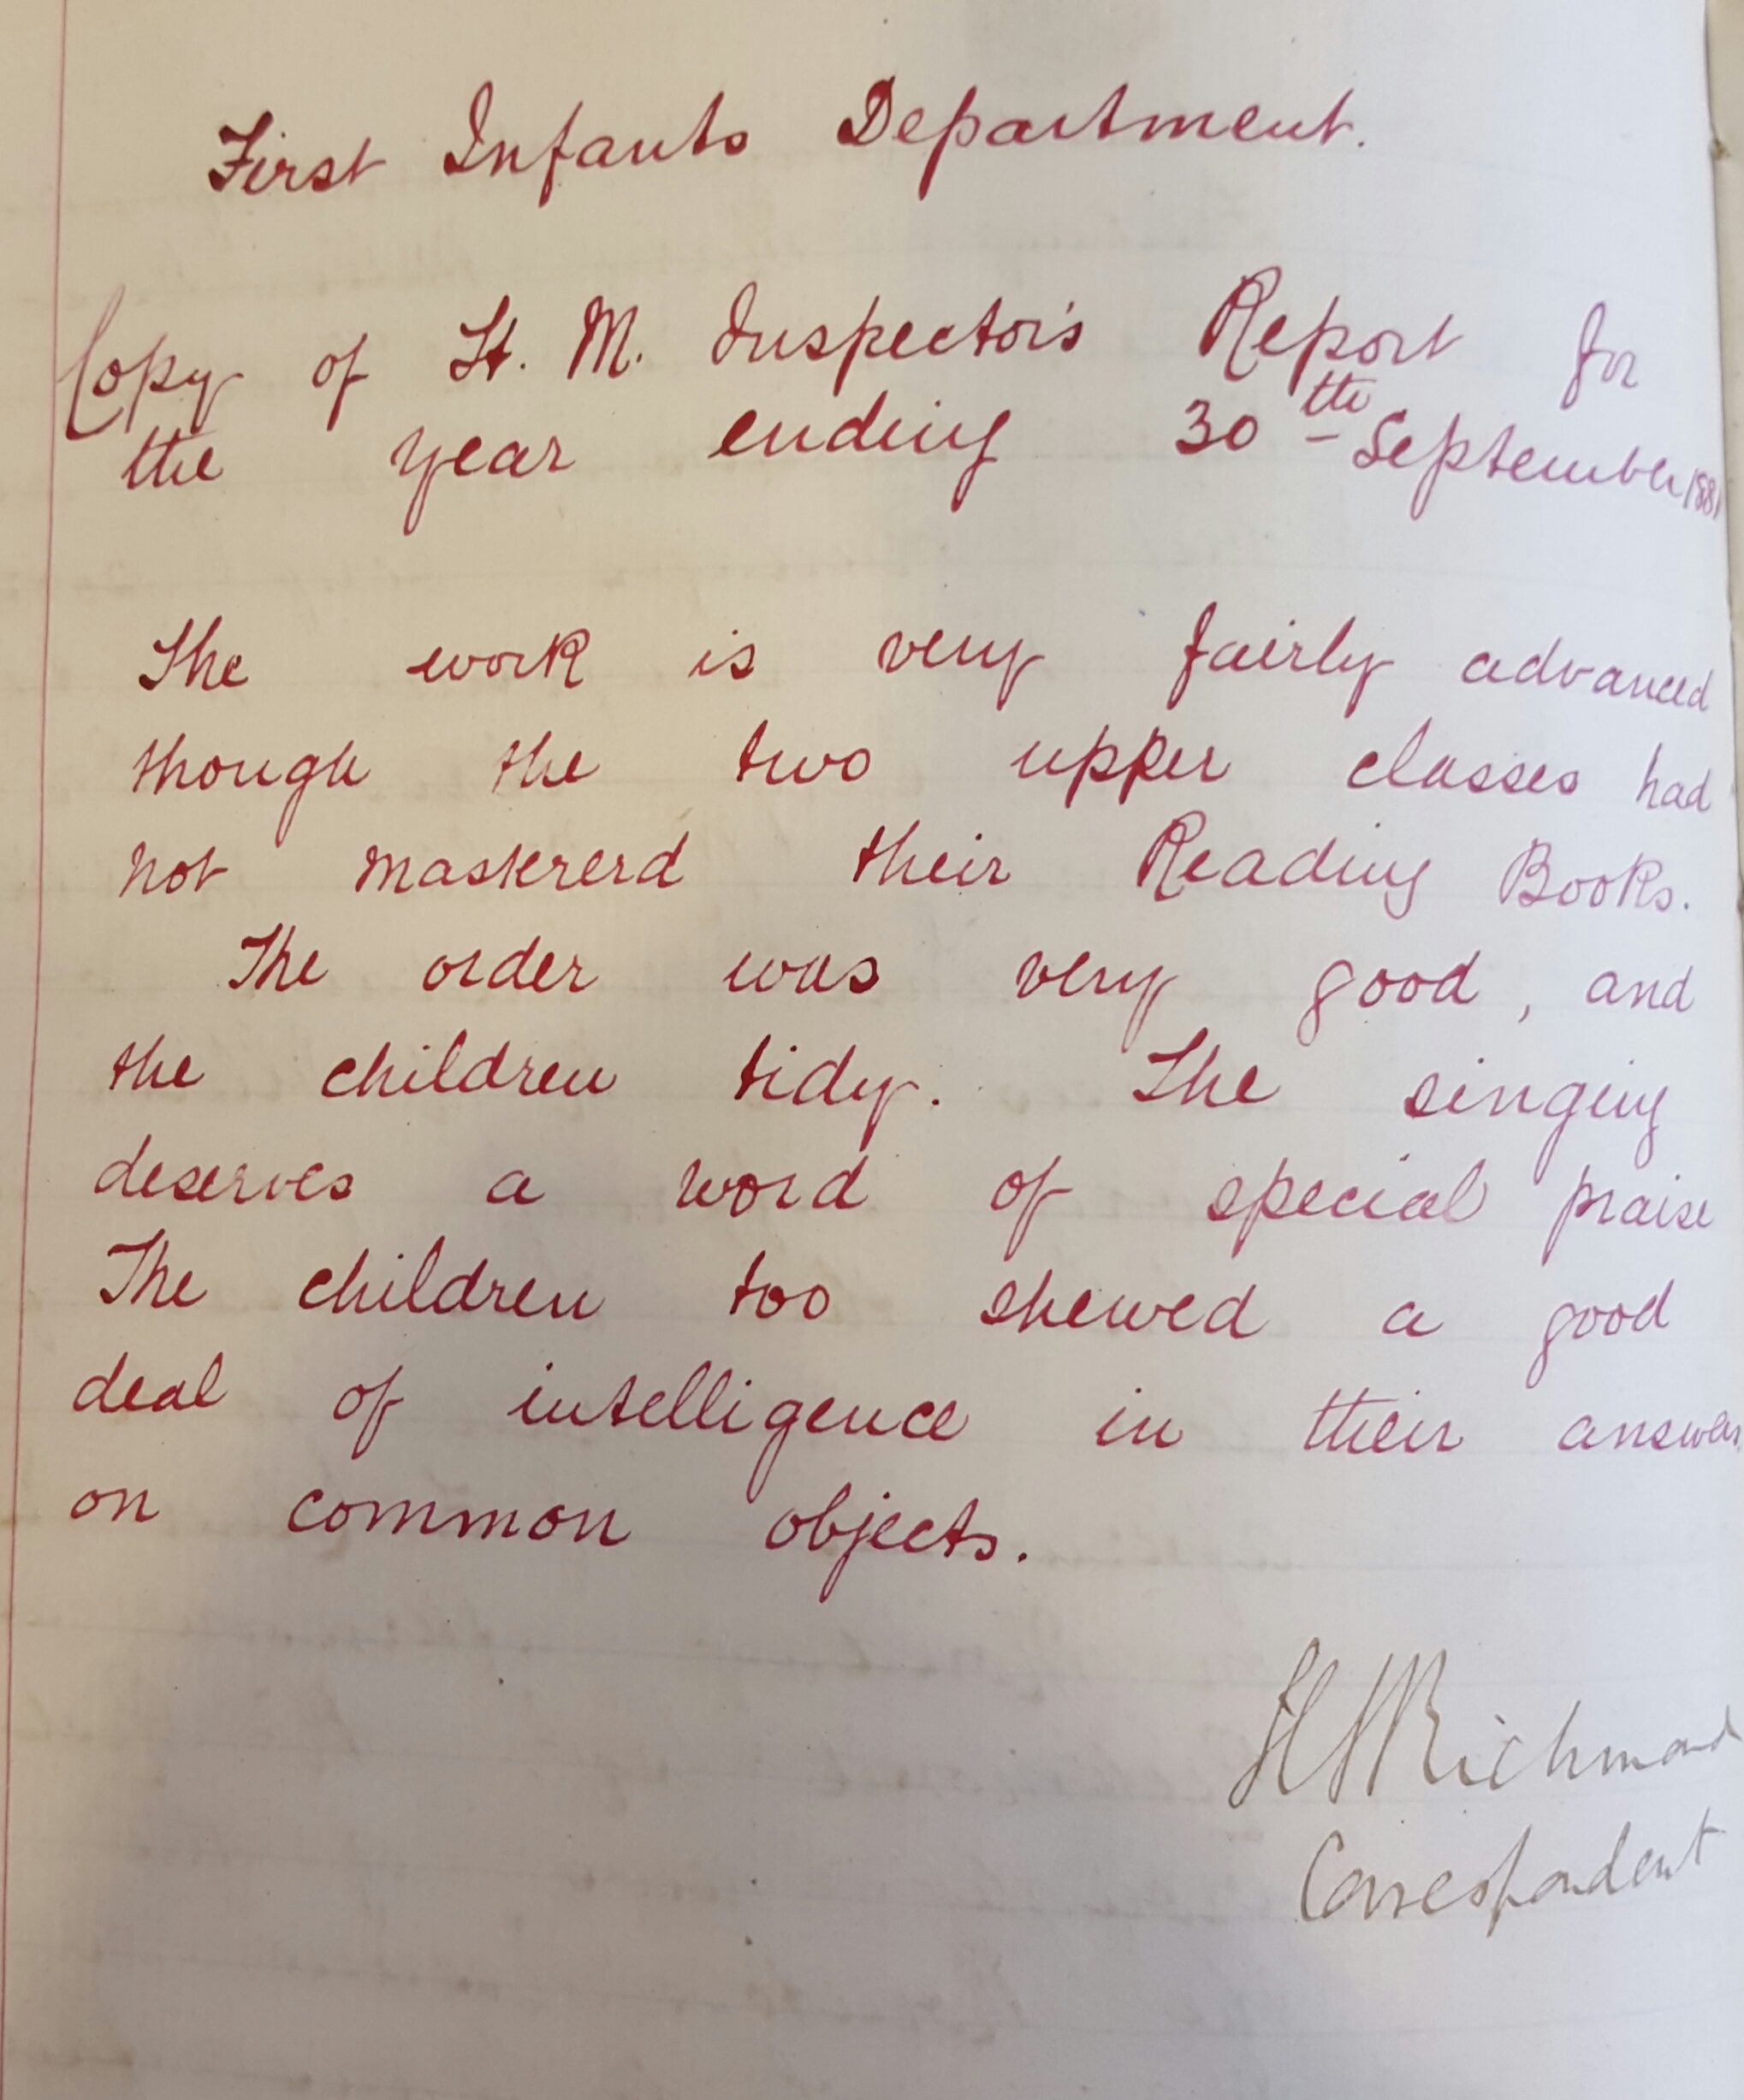 First Infants Department.
Copy of H. M. Inspector's Report for
the year ending 30th September 1881
The work is very fairly advanced
though the two upper classes had
not mastererd their Reading Books.
The order was very good, and
the children tidy. The singing
deserves a word of special praise
The children too shewed a good
deal of intelligence in their answers
on common objects.
Richmond
Correspondent